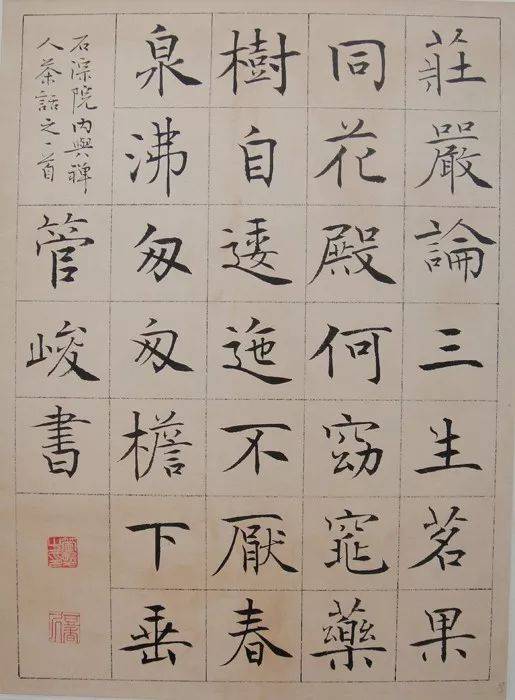 莊嚴論三生茗果
同花殿何窈窕藥
樹自逶迤不厭春
泉沸匆匆檐下垂
石淙院內與禪
人茶話之一首
管峻書